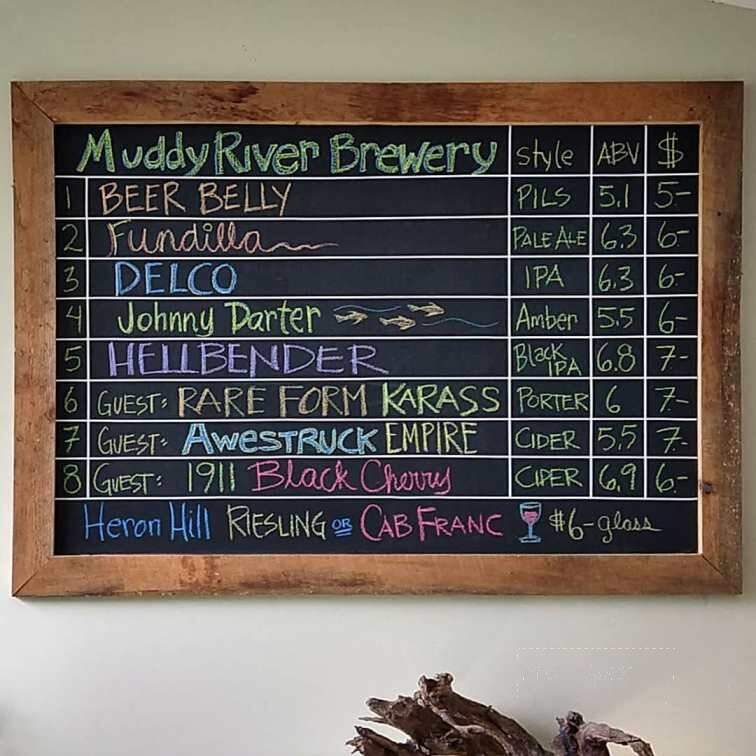 Muddy River Brewery Style ABV $
1 BEER BELLY PILS 5.1 5-
2 Fundilla PALE ALE 6.3 6-
3 DELCO IPA 6.3 6-
4 Johnny Darter Amber 5.5 6-
5 HELLBENDER Black IPA 6.8 7-
6 GUEST: RARE FORM KARASS PORTER 6 7-
7 GUEST: AWESTRUCK EMPIRE CIDER 5.5 7-
8 GUEST: 1911 Black Cherry CIDER 6.9 6-
Heron Hill RIESLING OR CAB FRANC $6-glass